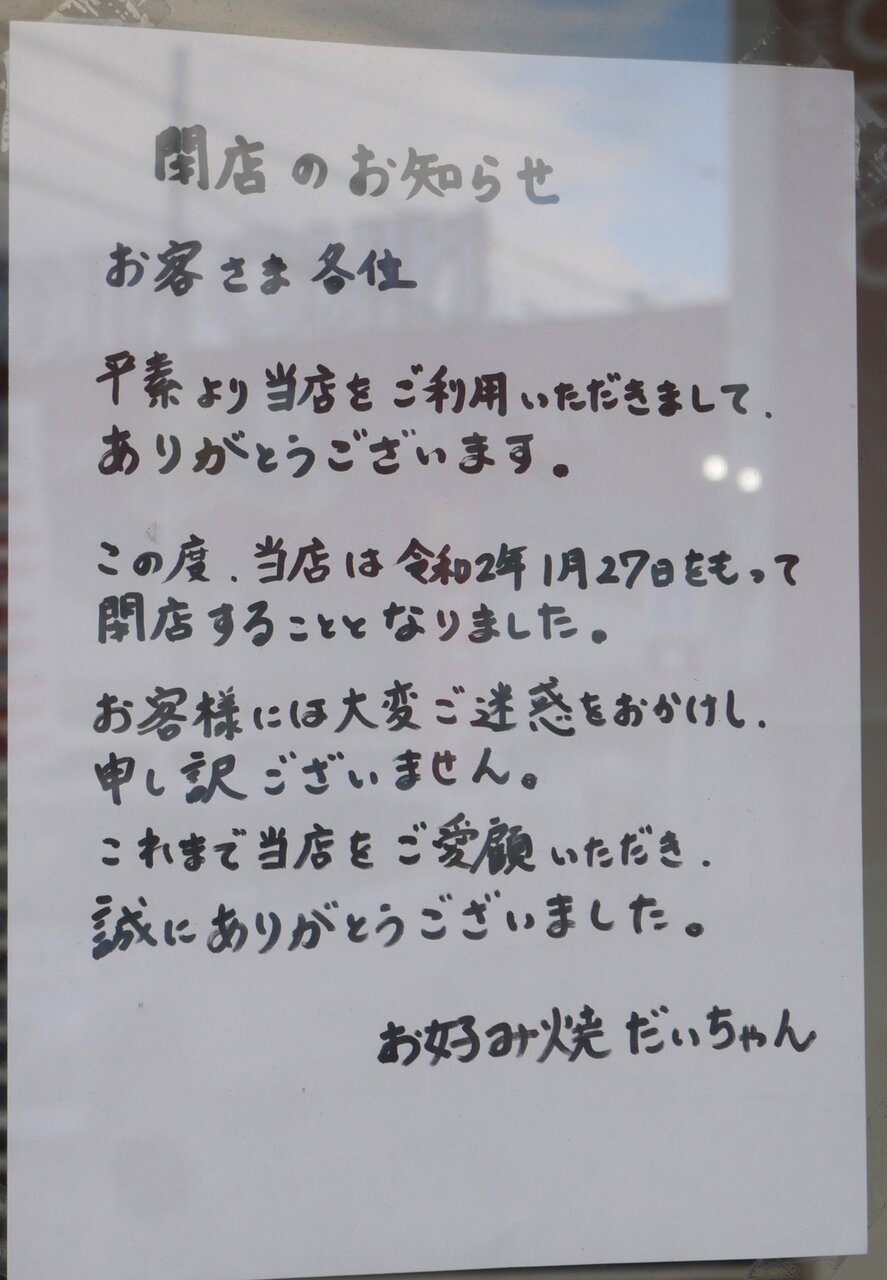 閉店のお知らせ
お客さま各位
平素より当店をご利用いただきまして、
ありがとうございます。
この度、当店は令和2年1月27日をもって
閉店することとなりました。
お客様には大変ご迷惑をおかけし、
申し訳ございません。
これまで当店をご愛顧いただき、
誠にありがとうございました。
お好み焼だいちゃん